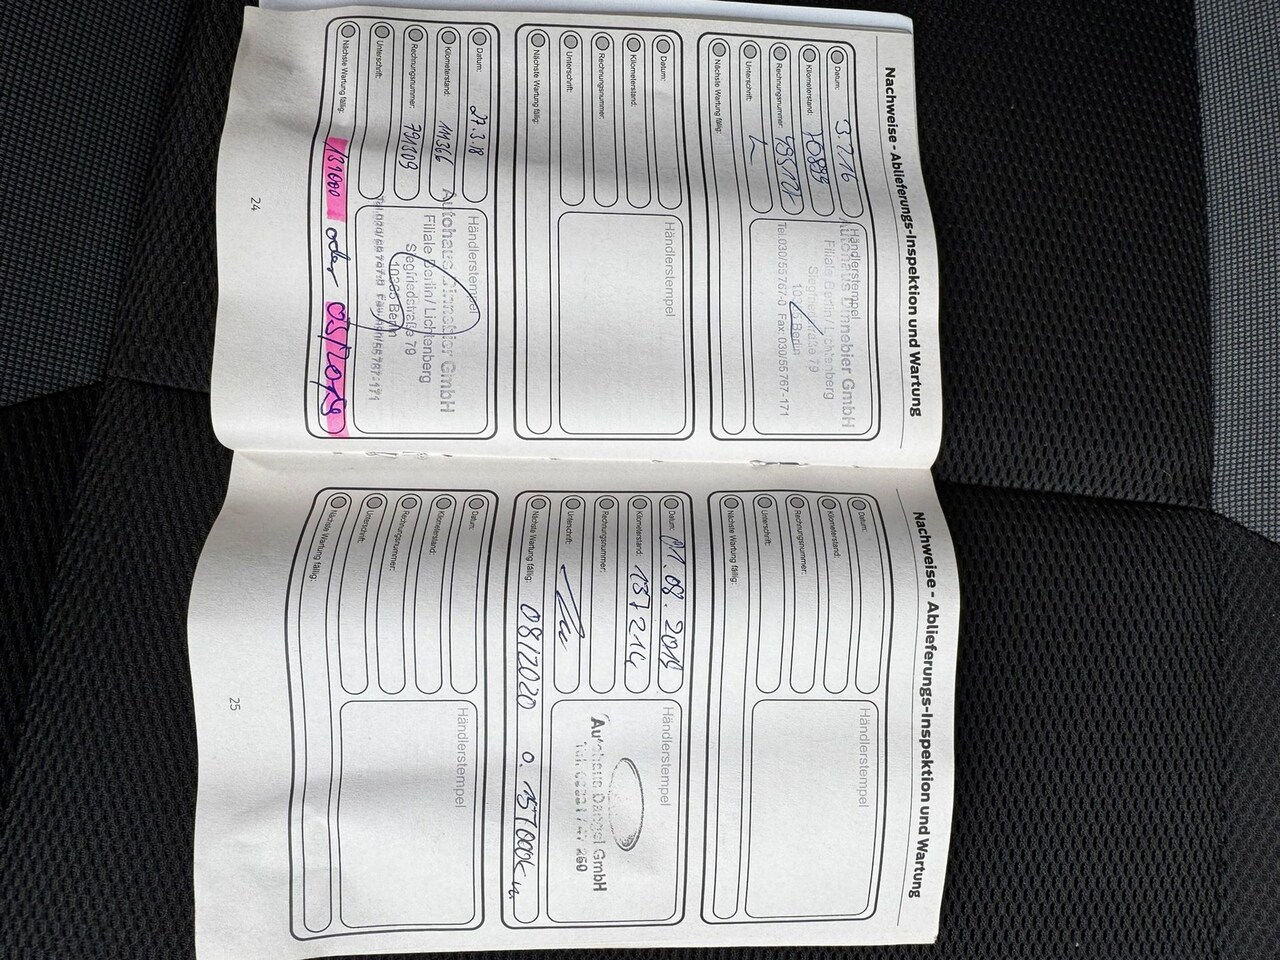 Nachweise - Ablieferungs-Inspektion und Wartung
Datum: 3.2.16
Kilometerstand:
Rechnungsnummer:
Unterschrift:
Nächste Wartung fällig:
Händlerstempel
Autohaus Dinnebier GmbH
Filiale Berlin / Lichtenberg
Siegfriedstraße 79
10365 Berlin
Tel.030/55767-0 Fax: 030/55767-171
Datum:
Kilometerstand:
Rechnungsnummer:
Unterschrift:
Nächste Wartung fällig:
Händlerstempel
Datum: 27.3.18
Kilometerstand: 111366
Rechnungsnummer: 791309
Unterschrift:
Nächste Wartung fällig: 131000 oder 03/2019
Händlerstempel
Autohaus Dinnebier GmbH
Filiale Berlin / Lichtenberg
Siegfriedstraße 79
10365 Berlin
Tel.030/55767-0 Fax: 030/55767-171
24
Nachweise - Ablieferungs-Inspektion und Wartung
Datum:
Kilometerstand:
Rechnungsnummer:
Unterschrift:
Nächste Wartung fällig:
Händlerstempel
Datum: 01.08.2019
Kilometerstand: 137214
Rechnungsnummer:
Unterschrift:
Nächste Wartung fällig: 08/2020 o. 157000km
Händlerstempel
Autohaus Dangel GmbH
Datum:
Kilometerstand:
Rechnungsnummer:
Unterschrift:
Nächste Wartung fällig:
Händlerstempel
25